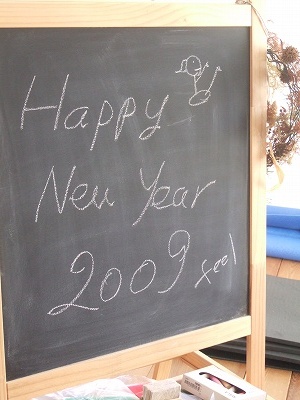 Happy
New Year
2009 feel